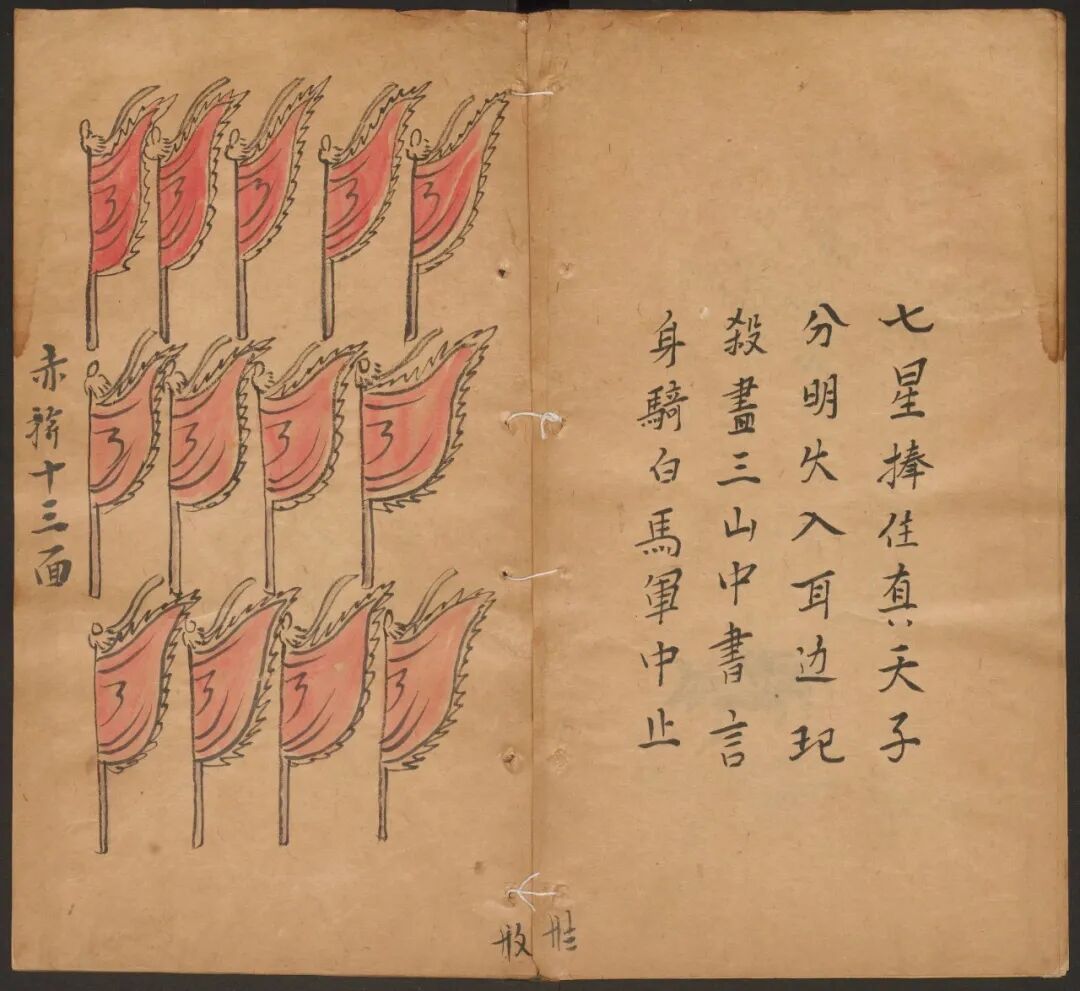 七星捧住真天子
分明火入耳边玘
殺畫三山中書言
身騎白馬軍中止
赤旂十三面